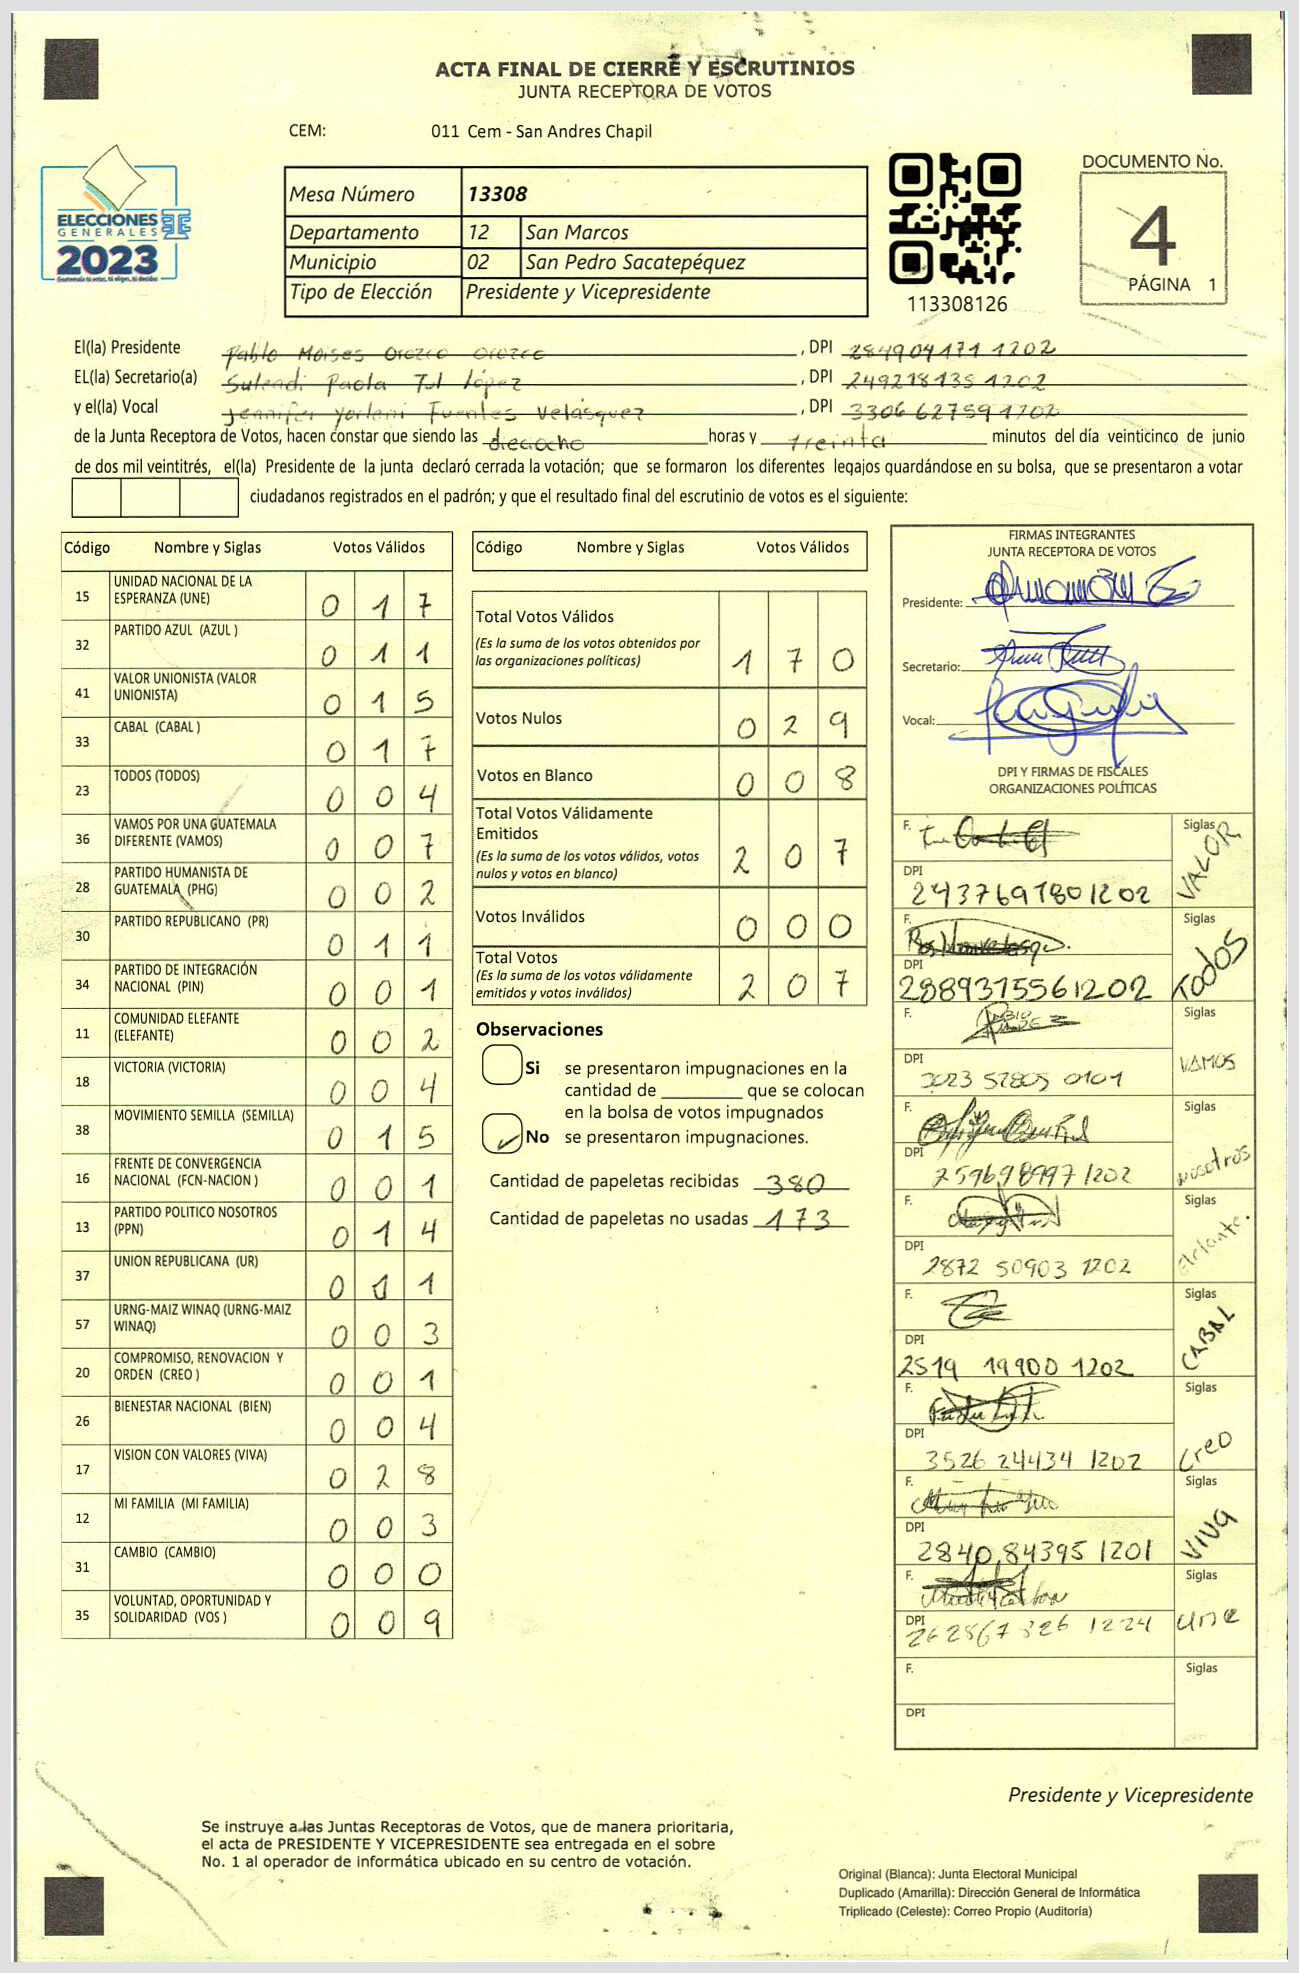 ACTA FINAL DE CIERRE Y ESCRUTINIOS
JUNTA RECEPTORA DE VOTOS
CEM: 011 Cem - San Andres Chapil
ELECCIONES
GENERALES
2023
Mesa Número 13308
Departamento 12 San Marcos
Municipio 02 San Pedro Sacatepéquez
Tipo de Elección Presidente y Vicepresidente
113308126
DOCUMENTO No.
4
PÁGINA 1
El(la) Presidente Pablo Moises Orozco Orozco, DPI 284904171 1202
EL(la) Secretario(a) Sulendi Paola Tul López, DPI 249218135 1202
y el(la) Vocal Jennifer Yorleni Fuentes Velásquez, DPI 3306 62759 1202
de la Junta Receptora de Votos, hacen constar que siendo las dieciocho horas y treinta minutos del día veinticinco de junio
de dos mil veintitrés, el(la) Presidente de la junta declaró cerrada la votación; que se formaron los diferentes legajos quardándose en su bolsa, que se presentaron a votar
ciudadanos registrados en el padrón; y que el resultado final del escrutinio de votos es el siguiente:
Código Nombre y Siglas Votos Válidos
15 UNIDAD NACIONAL DE LA ESPERANZA (UNE) 0 1 7
32 PARTIDO AZUL (AZUL ) 0 1 1
41 VALOR UNIONISTA (VALOR UNIONISTA) 0 1 5
33 CABAL (CABAL ) 0 1 7
23 TODOS (TODOS) 0 0 4
36 VAMOS POR UNA GUATEMALA DIFERENTE (VAMOS) 0 0 7
28 PARTIDO HUMANISTA DE GUATEMALA (PHG) 0 0 2
30 PARTIDO REPUBLICANO (PR) 0 1 1
34 PARTIDO DE INTEGRACIÓN NACIONAL (PIN) 0 0 1
11 COMUNIDAD ELEFANTE (ELEFANTE) 0 0 2
18 VICTORIA (VICTORIA) 0 0 4
38 MOVIMIENTO SEMILLA (SEMILLA) 0 1 5
16 FRENTE DE CONVERGENCIA NACIONAL (FCN-NACION ) 0 0 1
13 PARTIDO POLITICO NOSOTROS (PPN) 0 1 4
37 UNION REPUBLICANA (UR) 0 1 1
57 URNG-MAIZ WINAQ (URNG-MAIZ WINAQ) 0 0 3
20 COMPROMISO, RENOVACION Y ORDEN (CREO ) 0 0 1
26 BIENESTAR NACIONAL (BIEN) 0 0 4
17 VISION CON VALORES (VIVA) 0 2 8
12 MI FAMILIA (MI FAMILIA) 0 0 3
31 CAMBIO (CAMBIO) 0 0 0
35 VOLUNTAD, OPORTUNIDAD Y SOLIDARIDAD (VOS ) 0 0 9
Código Nombre y Siglas Votos Válidos
Total Votos Válidos
(Es la suma de los votos obtenidos por
las organizaciones políticas) 1 7 0
Votos Nulos 0 2 9
Votos en Blanco 0 0 8
Total Votos Válidamente
Emitidos
(Es la suma de los votos válidos, votos
nulos y votos en blanco) 2 0 7
Votos Inválidos 0 0 0
Total Votos
(Es la suma de los votos válidamente
emitidos y votos inválidos) 2 0 7
Observaciones
Si se presentaron impugnaciones en la
cantidad de ________ que se colocan
en la bolsa de votos impugnados
No se presentaron impugnaciones.
Cantidad de papeletas recibidas 380
Cantidad de papeletas no usadas 173
FIRMAS INTEGRANTES
JUNTA RECEPTORA DE VOTOS
Presidente:
Secretario:
Vocal:
DPI Y FIRMAS DE FISCALES
ORGANIZACIONES POLÍTICAS
F. Siglas VALOR
DPI 2437691801202
F. Siglas TODOS
DPI 2889375561202
F. Siglas VAMOS
DPI 3023 52805 0101
F. Siglas nosotros
DPI 259698997 1202
F. Siglas elefante.
DPI 2872 50903 1202
F. Siglas CABAL
DPI 2519 19900 1202
F. Siglas Creo
DPI 3526 24434 1202
F. Siglas VIVA
DPI 2840 84395 1201
F. Siglas une
DPI 262867326 1224
F. Siglas
DPI
Presidente y Vicepresidente
Se instruye a las Juntas Receptoras de Votos, que de manera prioritaria,
el acta de PRESIDENTE Y VICEPRESIDENTE sea entregada en el sobre
No. 1 al operador de informática ubicado en su centro de votación.
Original (Blanca): Junta Electoral Municipal
Duplicado (Amarilla): Dirección General de Informática
Triplicado (Celeste): Correo Propio (Auditoría)